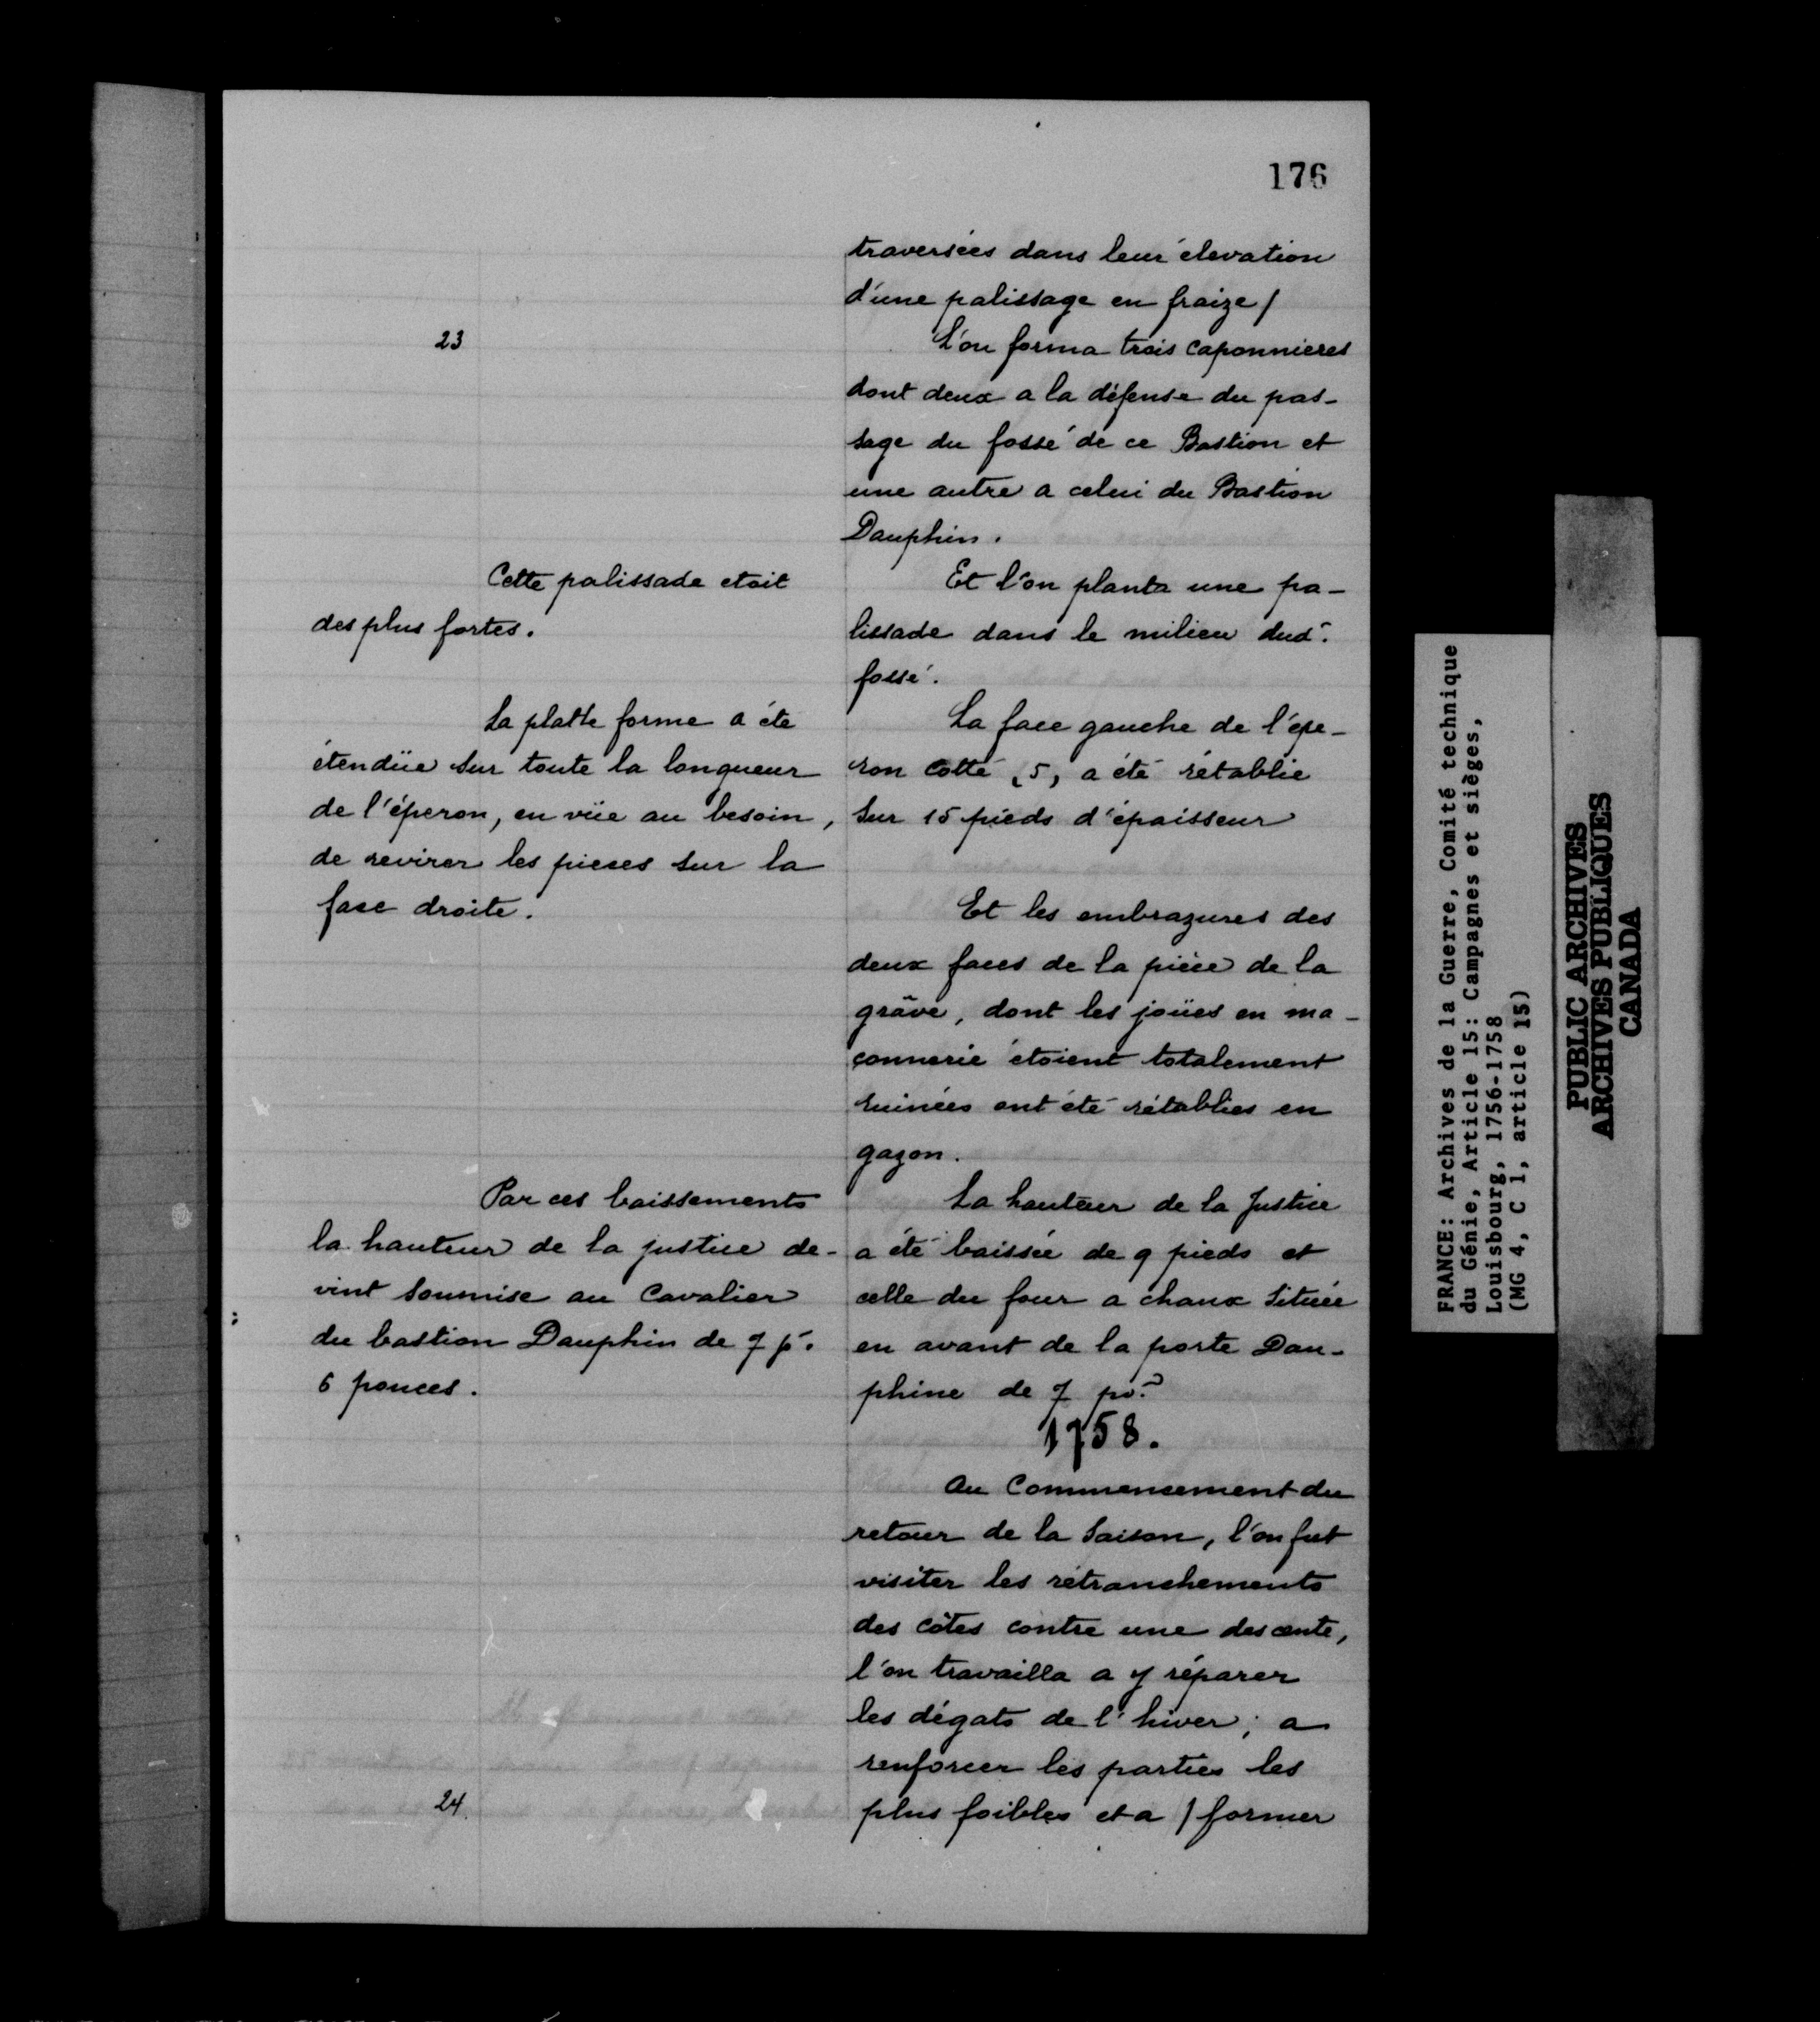 176
traversées dans leur élevation
d'une palissage en fraize /
23
L'on forma trois caponnieres
dont deux a la défense du pas-
sage du fossé de ce Bastion et
une autre a celui du Bastion
Dauphin.
Cette palissade etoit
des plus fortes.
Et l'on planta une pa-
lissade dans le milieu dud.
fossé.
La platte forme a été
étendüe sur toute la longueur
de l'éperon, en vüe au besoin,
de revirer les pieces sur la
face droite.
La face gauche de l'épe-
ron cotté (5, a été rétablie
sur 15 pieds d'épaisseur
Et les embrazures des
deux faces de la pièce de la
grâve, dont les joües en ma-
çonnerie étoient totalement
ruinées ont été rétablies en
gazon.
Par ces baissements
la hauteur de la justice de-
vint soumise au Cavalier
du bastion Dauphin de 7 p.
6 pouces.
La hauteur de la Justice
a été baissée de 9 pieds et
celle du four a chaux située
en avant de la porte Dau-
phine de 7 po.
1758.
Au Commencement du
retour de la Saison, l'on fut
visiter les retranchements
des côtes contre une descente,
l'on travailla a y réparer
les dégats de l'hiver; a
renforcer les parties les
24.
plus foibles et a / former
FRANCE: Archives de la Guerre, Comité technique
du Génie, Article 15: Campagnes et sièges,
Louisbourg, 1756-1758
(MG 4, C 1, article 15)
PUBLIC ARCHIVES
ARCHIVES PUBLIQUES
CANADA